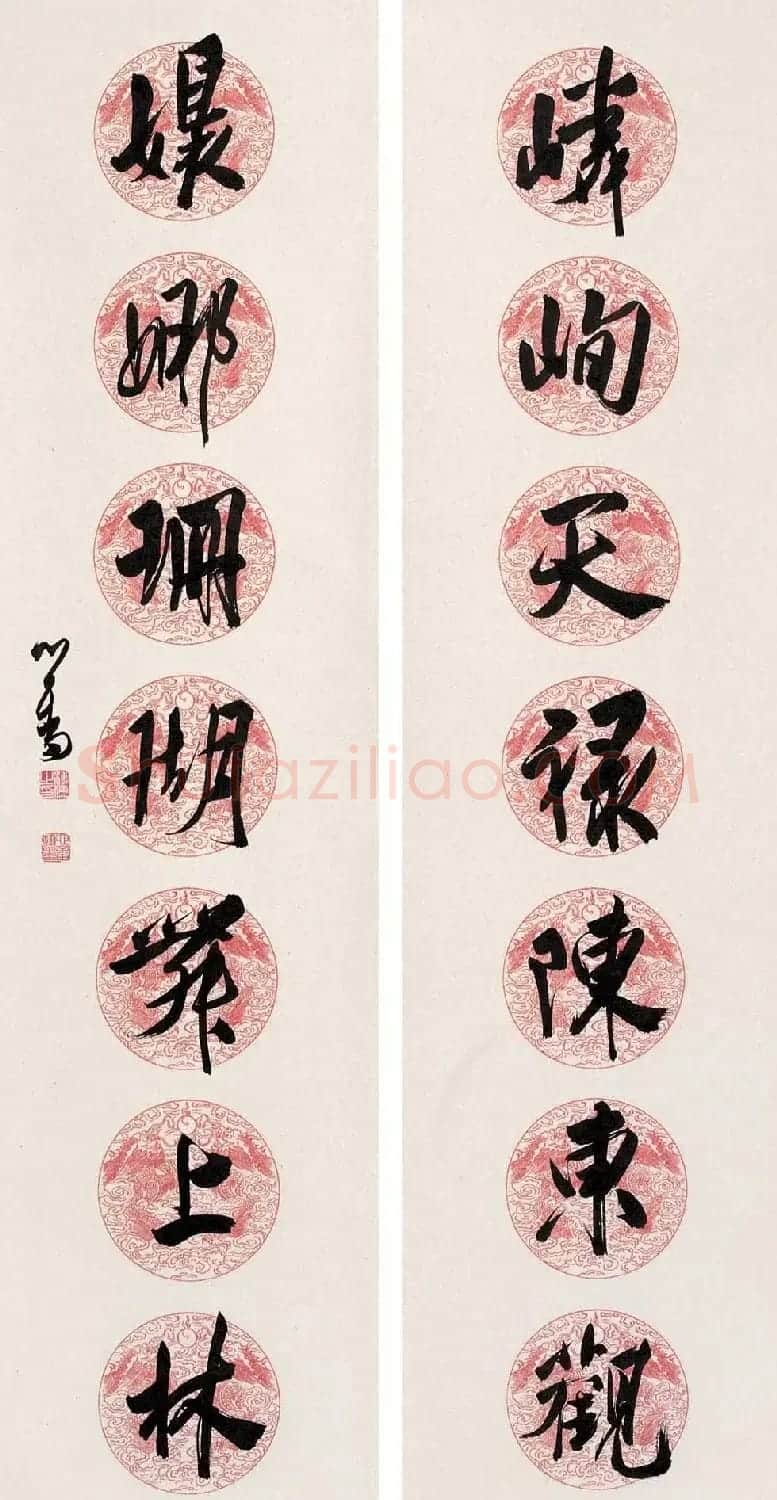 嶙峋天祿陳東觀
嬝娜珊瑚舞上林
心畬
Shufaziliao.com